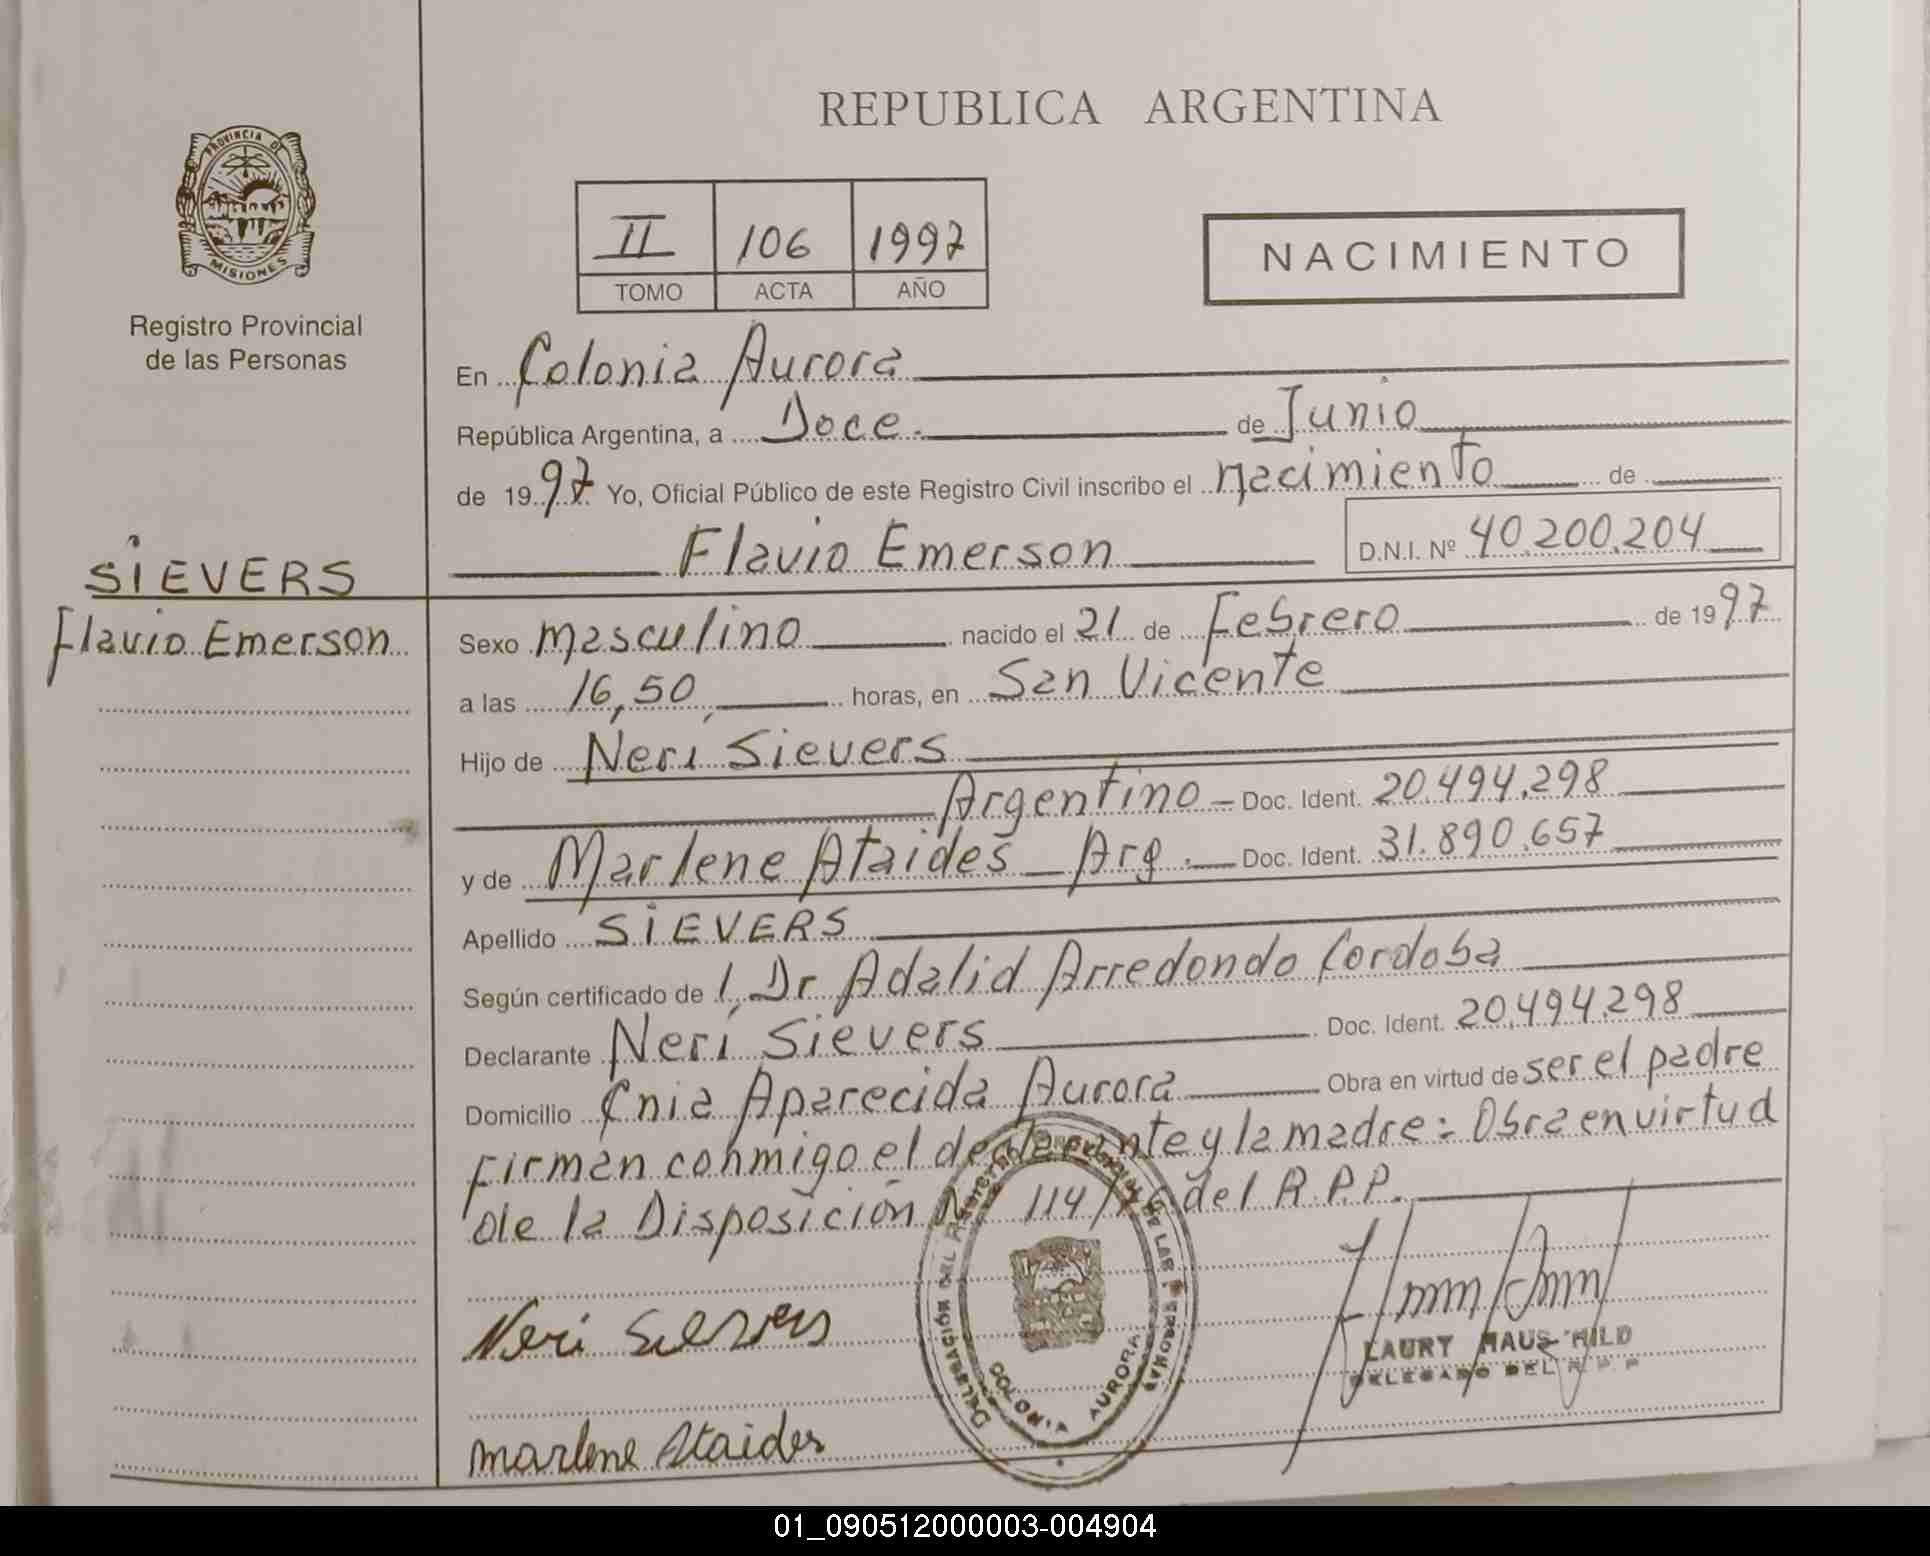 PROVINCIA DE
MISIONES
Registro Provincial
de las Personas
SIEVERS
Flavio Emerson
REPUBLICA ARGENTINA
II 106 1997
TOMO ACTA AÑO
NACIMIENTO
En Colonia Aurora
República Argentina, a Doce de Junio
de 1997 Yo, Oficial Público de este Registro Civil inscribo el nacimiento de
Flavio Emerson D.N.I. Nº 40.200.204
Sexo masculino nacido el 21 de Febrero de 1997
a las 16,50 horas, en San Vicente
Hijo de Neri Sievers
Argentino Doc. Ident. 20.494.298
y de Marlene Ataides Arg. Doc. Ident. 31.890.657
Apellido SIEVERS
Según certificado de 1, Dr Adalid Arredondo Cordoba
Declarante Neri Sievers Doc. Ident. 20.494.298
Domicilio Cnia Aparecida Aurora Obra en virtud de ser el padre
Firman conmigo el declarante y la madre = Obra en virtud
de la Disposición 114/ del R.P.P.
Neri Sievers
Marlene Ataides
DELEGACION DEL REGISTRO PROVINCIAL DE LAS PERSONAS
COLONIA AURORA
LAURY HAUS HILD
DELEGADO DEL R.P.P
01_090512000003-004904